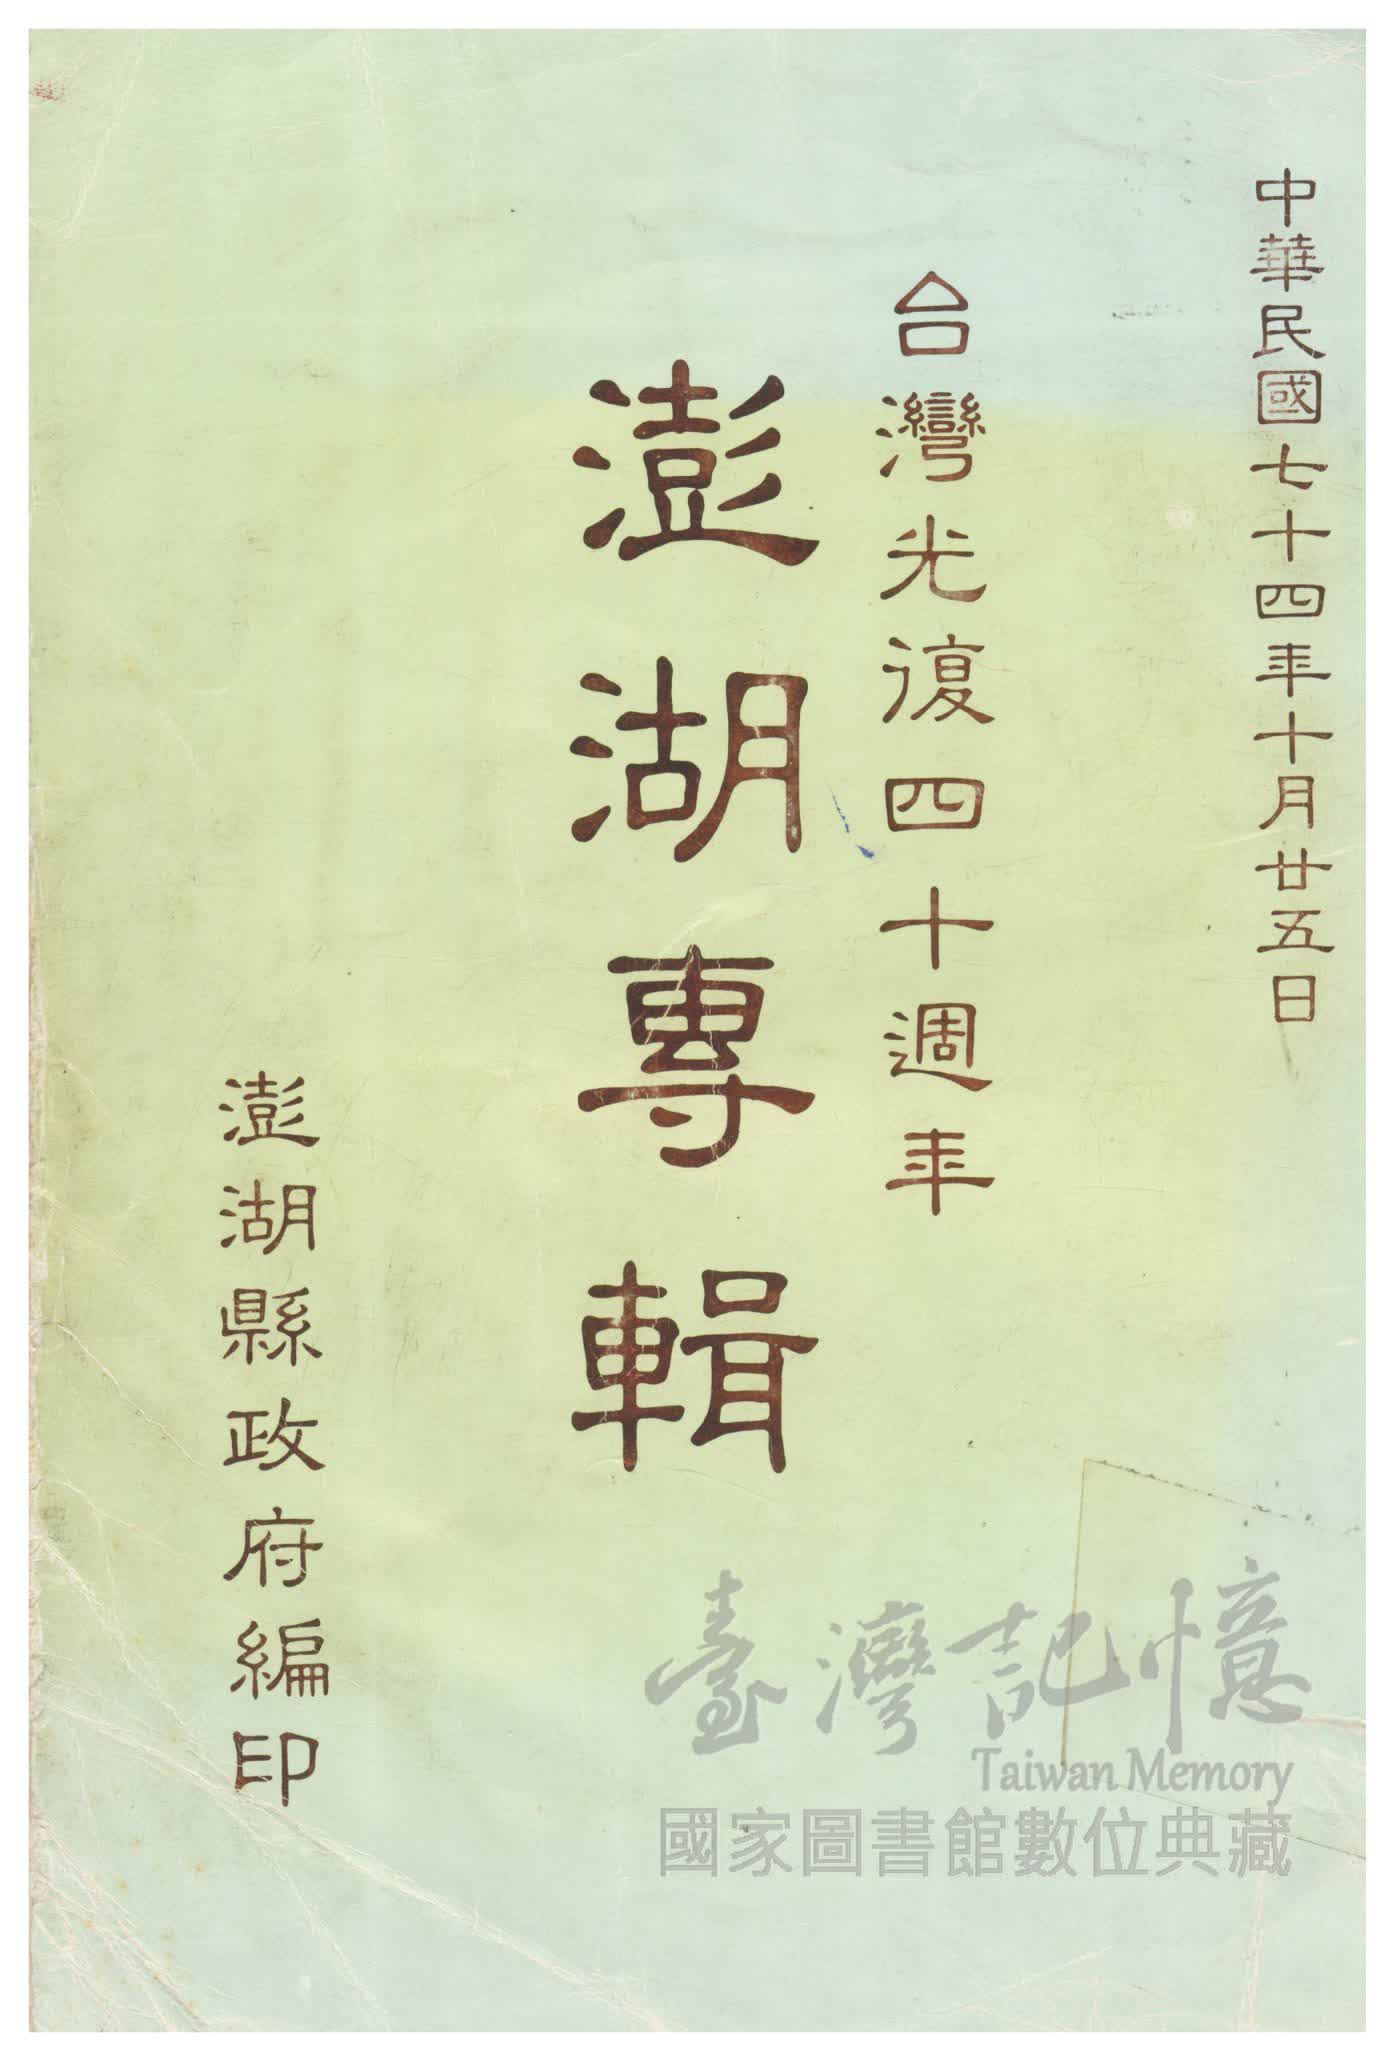 中華民國七十四年十月廿五日
台灣光復四十週年
澎湖專輯
澎湖縣政府編印
臺灣記憶
Taiwan Memory
國家圖書館數位典藏